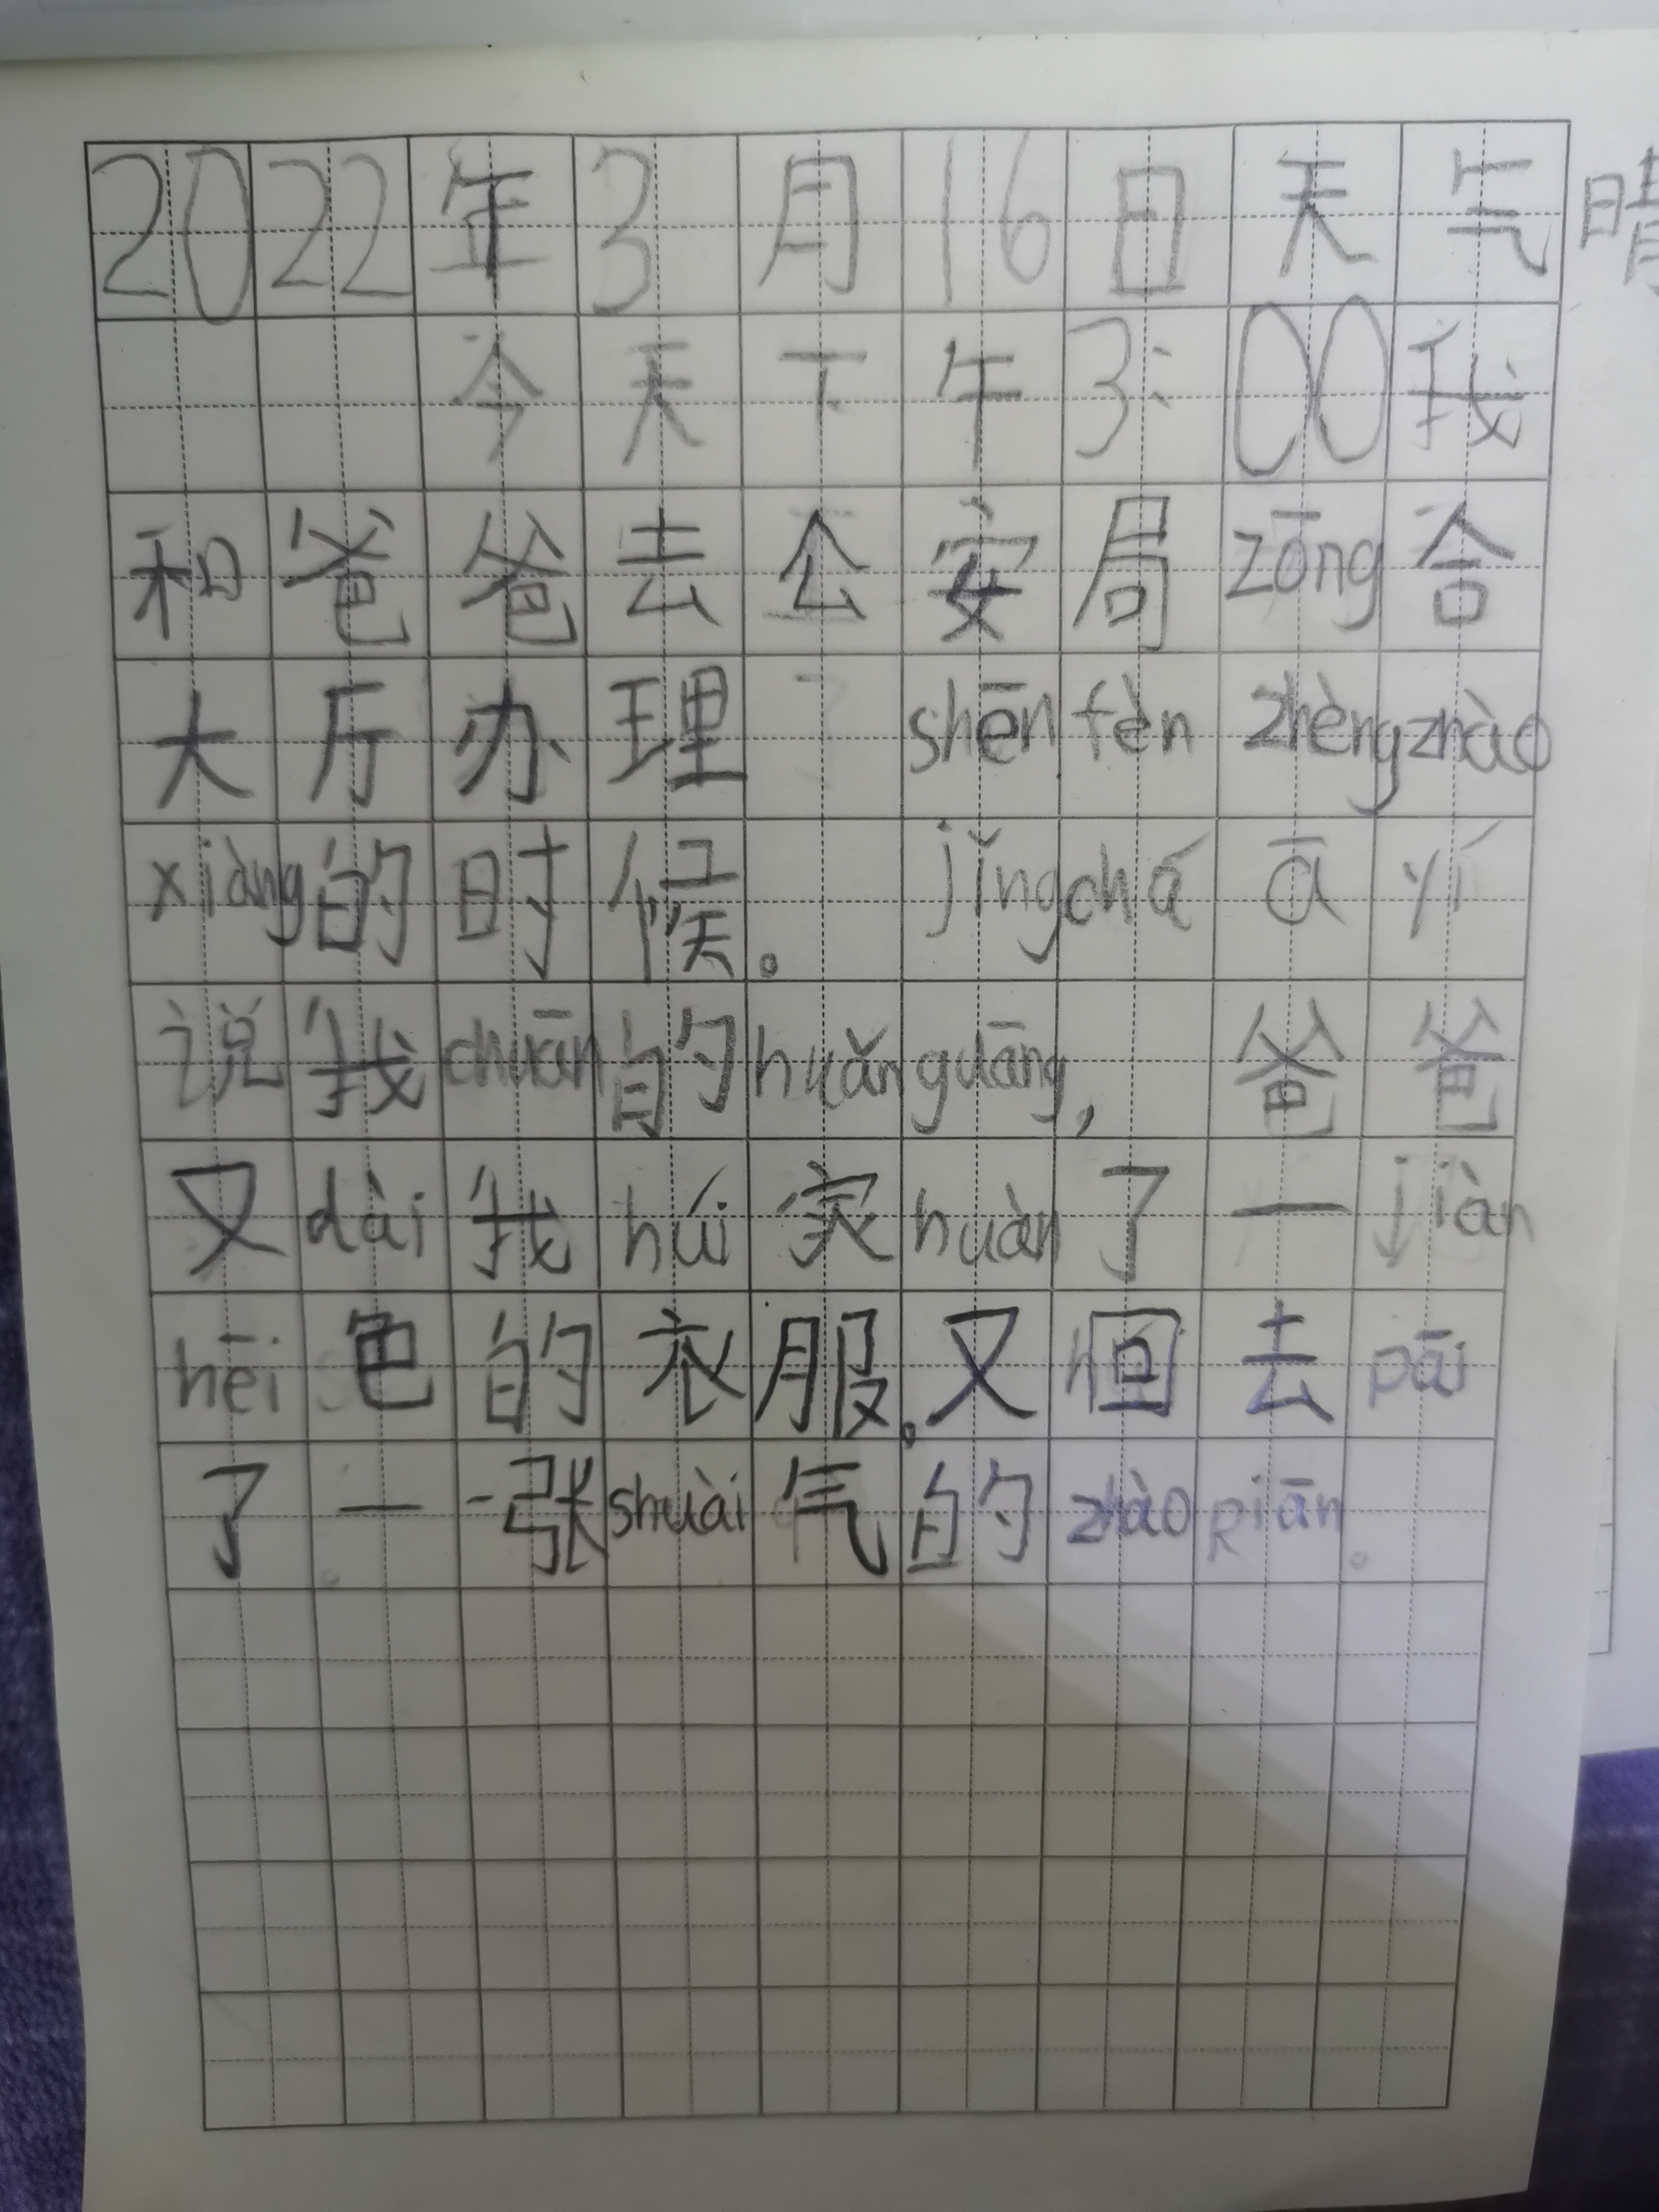 2022年3月16日天气晴
今天下午3:00我
和爸爸去公安局zōng合
大厅办理 shēn fèn zhèng zhào
xiàng的时候。 jǐng chá ā yí
说我chuān的huǎn guāng, 爸爸
又dài我húi家huàn了一jiàn
hēi色的衣服。又回去pāi
了一张shuài气的zhào piān。